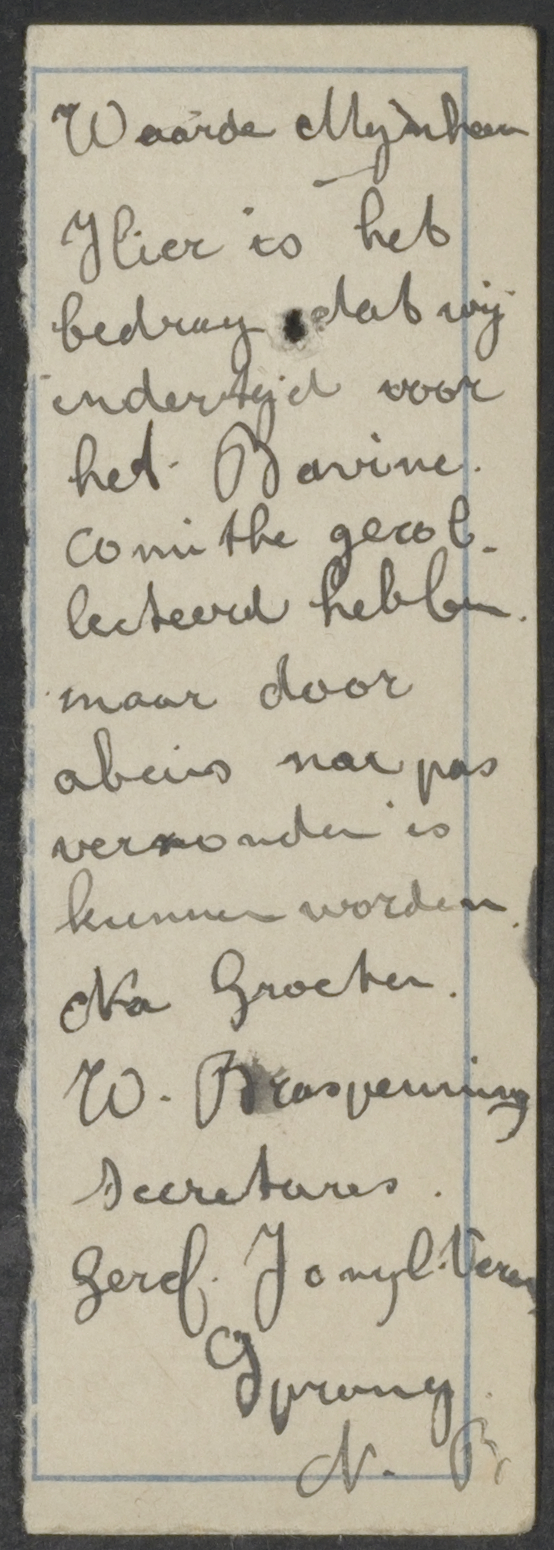 Waarde Mijnheer
Hier is het
bedrag dat wij
indertijd voor
het Bavinc.
comithe gecol-
lecteerd hebben.
maar door
abuis nar pas
verzonden is
kunnen worden.
Na Groeten.
W. Braspenning
Secretares.
Geref. Jongl. Veren
Sprang
N. B.